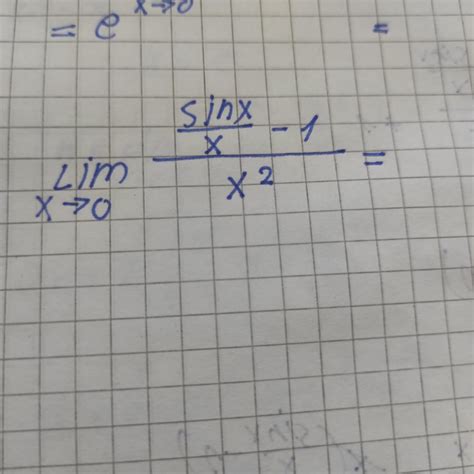 = e x→0 =
lim x→0 (sinx/x - 1)/x² =